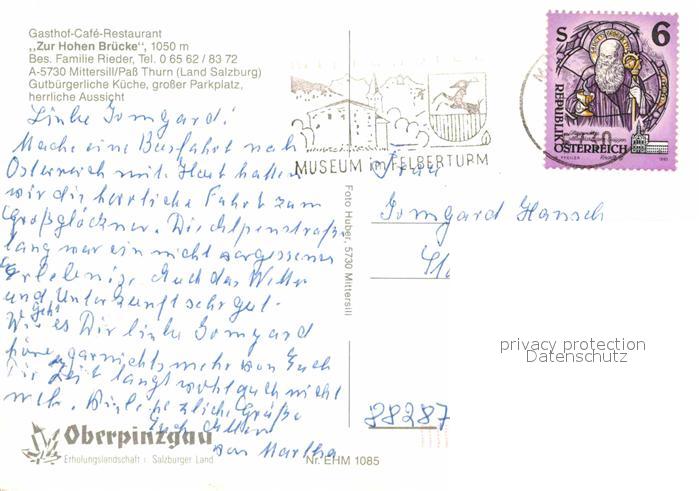 Gasthof-Café-Restaurant
„Zur Hohen Brücke", 1050 m
Bes. Familie Rieder, Tel. 0 65 62 / 83 72
A-5730 Mittersill/Paß Thurn (Land Salzburg)
Gutbürgerliche Küche, großer Parkplatz,
herrliche Aussicht
Liebe Irmgard!
Mache eine Busfahrt nach
Österreich mit. Heut hatten
wir die herrliche Fahrt zum
Großglöckner. Die Alpenstraße
lang war ein nicht vergessenes
Erlebnis, Auch das Wetter
und Unterkunft sehr gut.
Wie geht es Dir liebe Irmgard
höre garnichts mehr von Euch
Die Zeit langt wohl auch nicht
mehr. Viele herzliche Grüße
Euch Allen
von Martha
Oberpinzgau
Erholungslandschaft i. Salzburger Land
Nr. EHM 1085
Foto Huber, 5730 Mittersill
MUSEUM im FELBERTURM
5730
S 6
REPUBLIK
ÖSTERREICH
Frau
Irmgard Hansch
88287
privacy protection
Datenschutz